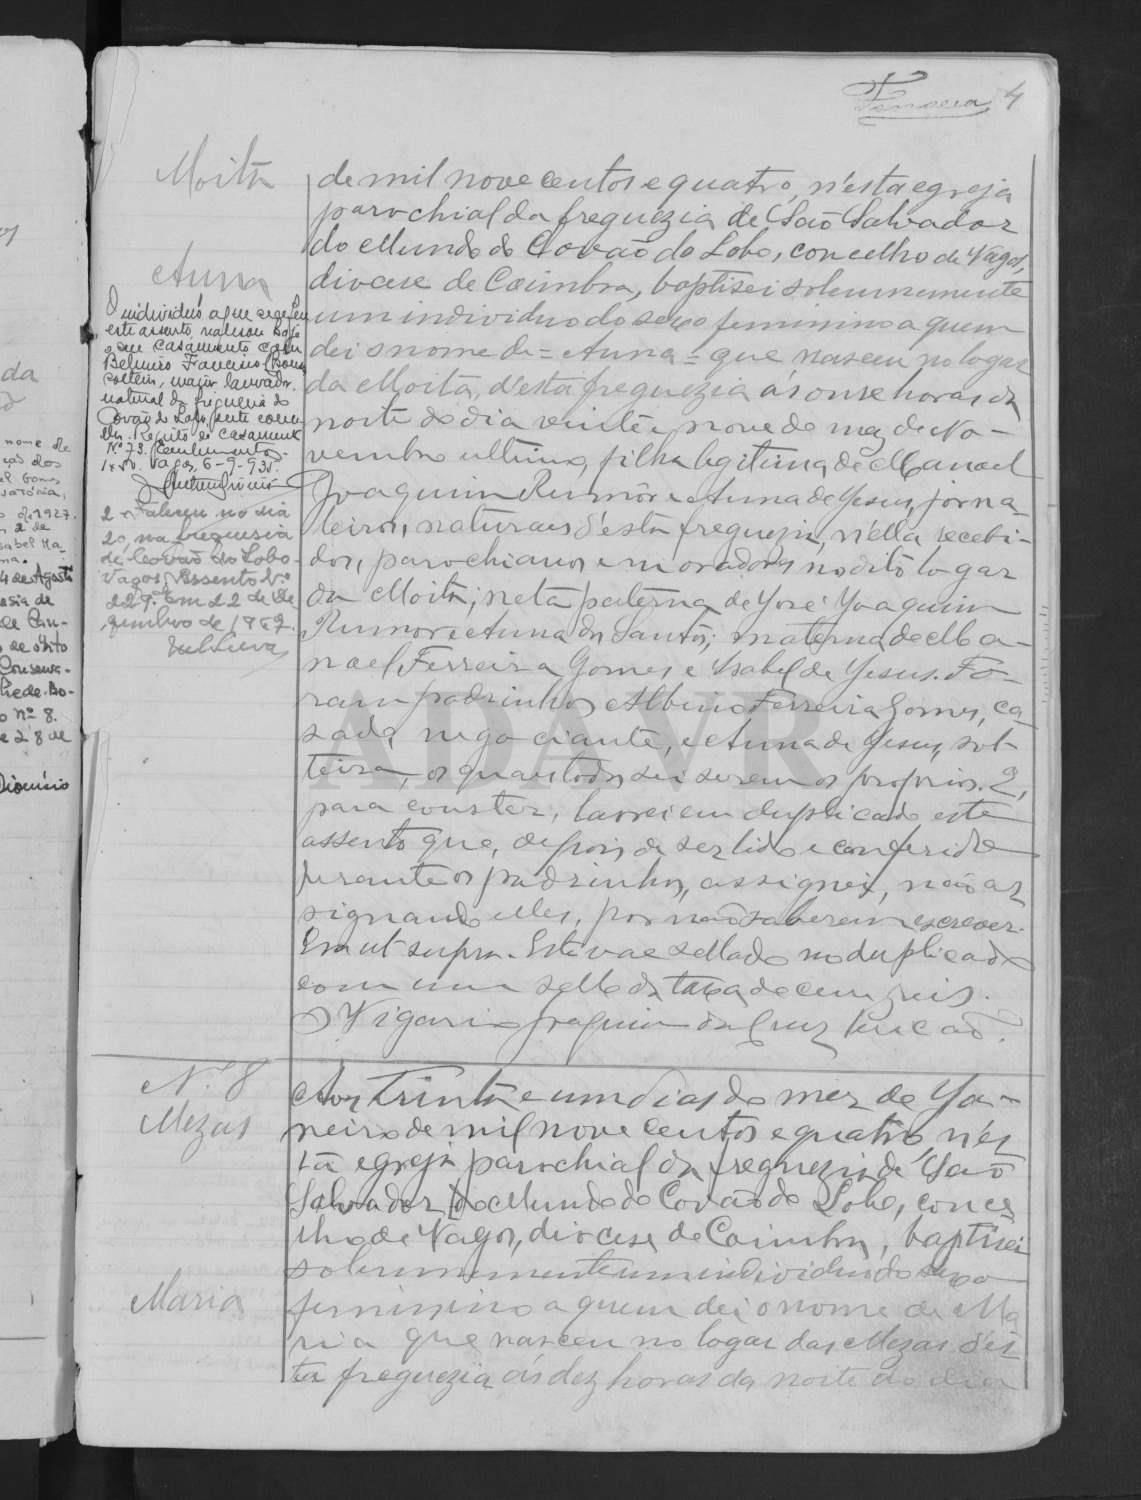 Fonseca 4
Moita
Anna
O individuo a que se refere
este assento, realisou hoje
o seu casamento com
Belmiro Francisco
solteiro, maior, lavrador
natural da freguesia de
Covão do Lobo, deste conce
lho. Registo de casamento
N.º 73. Emolumentos
Vagos, 6-9-93
2 Faleceu no dia
20, na freguesia
de Covão do Lobo -
Vagos, Assento N.º
229. Em 22 de De
zembro de 1982.
de mil nove centos e quatro, n'esta egreja
parochial da freguezia de São Salvador
do Mundo do Covão do Lobo, concelho de Vagos,
diocese de Coimbra, baptisei solemnemente
um individuo do sexo feminino a quem
dei o nome de = Anna = que nasceu no logar
da Moita, d'esta freguezia ás onse horas da
noite do dia vinte e nove do mez de No-
vembro ultimo, filha legitima de Manoel
Joaquim Rumôr e Anna de Jesus, jorna-
leiros, naturaes d'esta freguezia, n'ella recebi-
dos, parochianos e moradores no dito logar
da Moita; neta paterna de José Joaquim
Rumor e Anna dos Santos; materna de Ma-
noel Ferreira Gomes e Isabel de Jesus. Fo-
ram padrinhos Albino Ferreira Gomes, ca-
sado, negociante, e Anna de Jesus, sol-
teira, os quaes todos sei serem os proprios. E,
para constar, lavrei em duplicado este
assento que, depois de ser lido e conferido
perante os padrinhos, assignei, não as
signando elles, por não saberem escrever.
Era ut supra. Este vae sellado no duplicado
com um sello da taxa de cem reis.
O Vigario Joaquim da Cruz
N.º 8
Mezas
Maria
Aos trinta e um dias do mez de Ja-
neiro de mil nove centos e quatro, n'es
ta egreja parochial da freguezia de São
Salvador do Mundo de Covão do Lobo, conce
lho de Vagos, diocese de Coimbra, baptisei
solemnemente um individuo do sexo
feminino a quem dei o nome de Ma
ria que nasceu no logar das Mezas d'es
ta freguezia ás dez horas da noite do dia
da
nome de
1927.
2 de
4 de Agosto
esia de
de óbito
Conserva-
o nº 8.
e 28 de
Dionisio
ADAVR